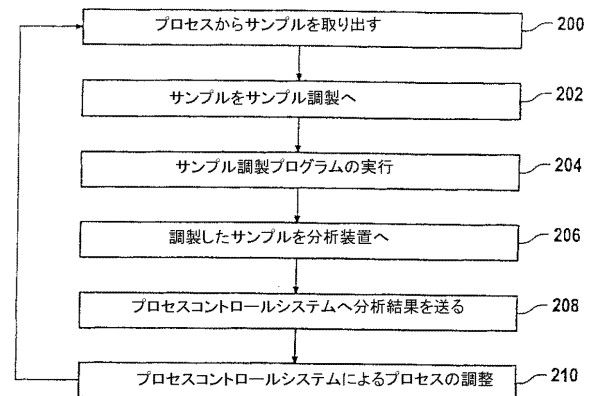 プロセスからサンプルを取り出す 200
サンプルをサンプル調製へ 202
サンプル調製プログラムの実行 204
調製したサンプルを分析装置へ 206
プロセスコントロールシステムへ分析結果を送る 208
プロセスコントロールシステムによるプロセスの調整 210